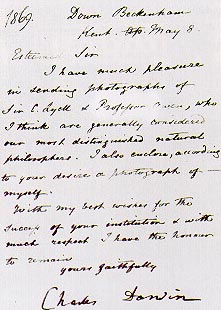 1869. Down Beckenham
Kent May 8.
Esteemed Sir
I have much pleasure
in sending photographs of
Sir C. Lyell & Professor Owen, who
I think are generally considered
our most distinguished natural
philosophers. I also enclose, according
to your desire a photograph of
myself.
With my best wishes for the
success of your institution & with
much respect I have the honour
to remain
yours faithfully
Charles Darwin